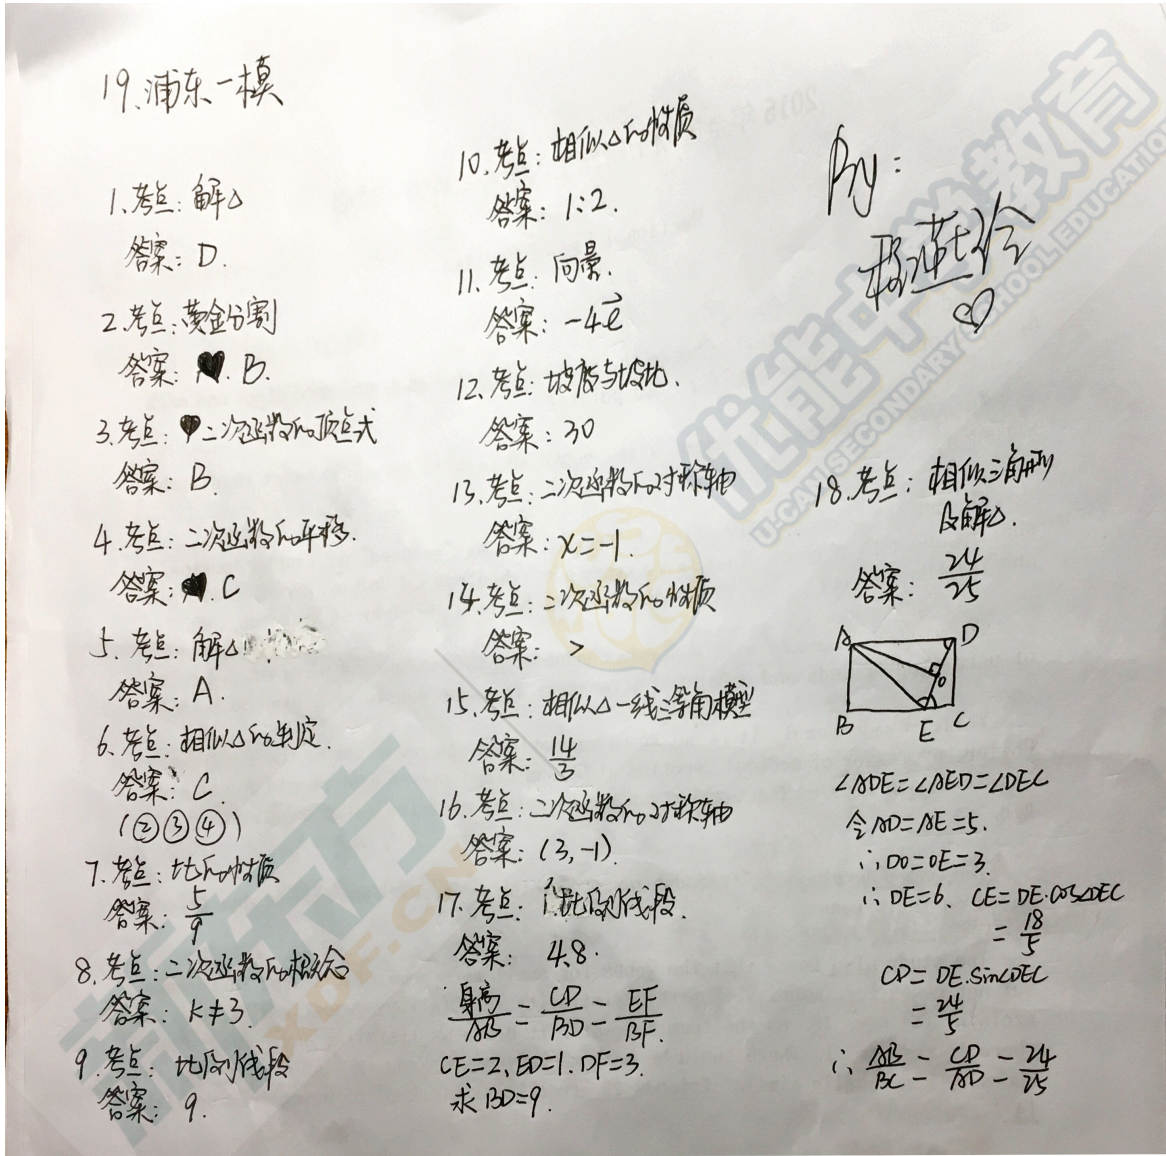 19、浦东一模
1、考点：解△
答案：D.
2、考点：黄金分割
答案：B.
3、考点：二次函数的顶点式
答案：B.
4、考点：二次函数的平移.
答案：C
5、考点：解△
答案：A.
6、考点：相似△的判定.
答案：C
（②③④）
7、考点：比的性质
答案：5/9
8、考点：二次函数的概念
答案：k≠3.
9、考点：比例线段
答案：9.
10、考点：相似△的性质
答案：1:2.
11、考点：向量.
答案：-4e⃗
12、考点：坡度与坡比.
答案：30
13、考点：二次函数的对称轴
答案：x=-1.
14、考点：二次函数的性质
答案：>
15、考点：相似△一线三等角模型
答案：14/3
16、考点：二次函数的对称轴
答案：(3,-1).
17、考点：比例线段.
答案：4.8.
身高/AB=CD/BD=EF/BF.
CE=2, ED=1. DF=3.
求BD=9.
By：
18、考点：相似三角形
及解△.
答案：24/25
A D
O
B E C
∠ADE=∠AED=∠DEC
令AD=AE=5.
∴DO=OE=3.
∴DE=6、CE=DE·cos∠DEC
=18/5
CD=DE.sin∠DEC
=24/5
∴AB/BC=CD/AD=24/25
优能中学教育
U-CAN SECONDARY SCHOOL EDUCATION
新东方
XDF.CN